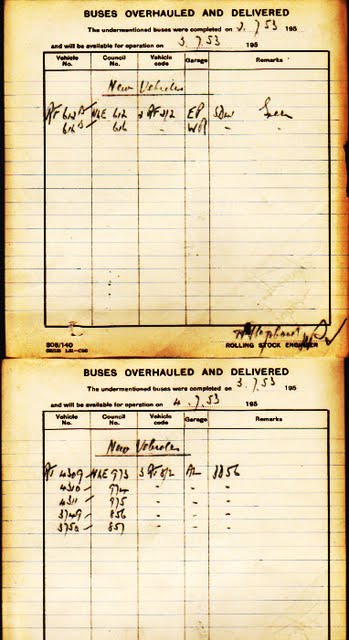 BUSES OVERHAULED AND DELIVERED
The undermentioned buses were completed on 2.7.53 195
and will be available for operation on 3.7.53 195
Vehicle No. Council No. Vehicle code Garage Remarks
New Vehicles
NLE 612 3 RF 5/2 EP
616 "
808/140
ROLLING STOCK ENGINEER
BUSES OVERHAULED AND DELIVERED
The undermentioned buses were completed on 3.7.53 195
and will be available for operation on 4.7.53 195
Vehicle No. Council No. Vehicle code Garage Remarks
New Vehicles
4309 NLE 973 3 AL
4310 974 " " "
4311 975 " " "
3749 856 " " "
3750 857 " " "